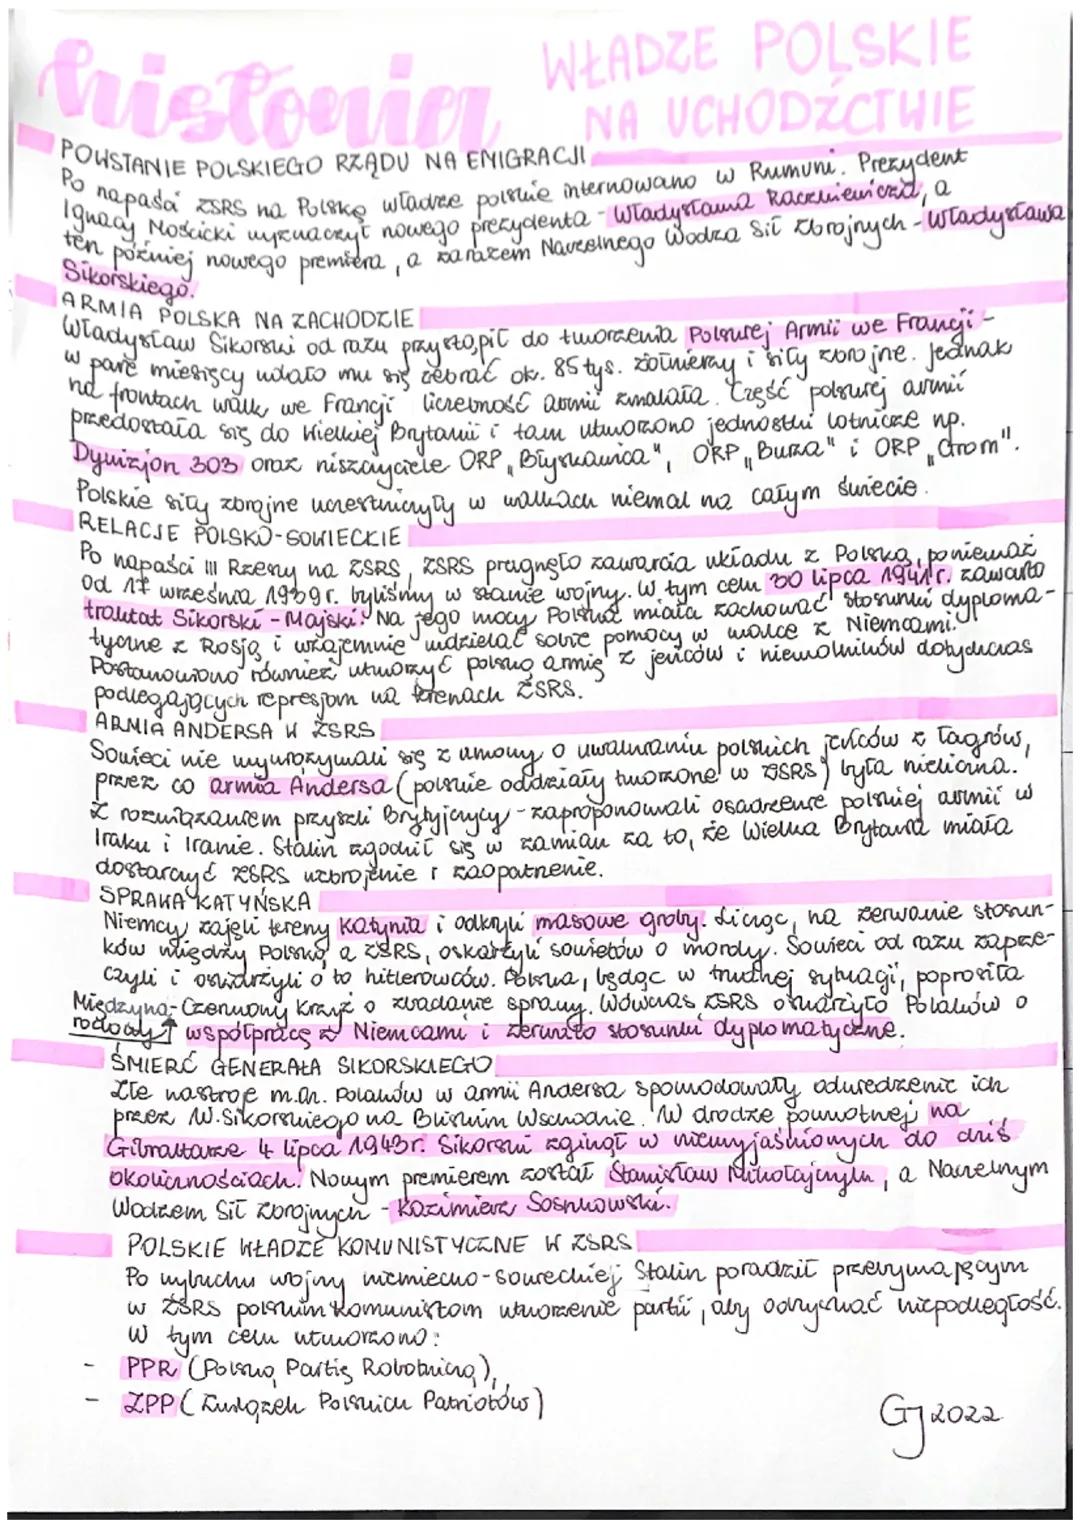 historia WŁADZE POLSKIE
NA UCHODŹCTWIE
POWSTANIE POLSKIEGO RZĄDU NA EMIGRACJI
Po napaści ZSRS na Polskę władze polskie internowano w Rumuni. Prezydent
Ignacy Mościcki wyznaczył nowego prezydenta - Władysława Raczkiewicza, a
ten później nowego premiera, a zarazem Naczelnego Wodza Sił Zbrojnych - Władysława
Sikorskiego.
ARMIA POLSKA NA ZACHODZIE
Władysław Sikorski od razu przystąpił do tworzenia Polskiej Armii we Francji -
w parę miesięcy udało mu się zebrać ok. 85 tys. żołnierzy i siły zbrojne. Jednak
na frontach walk we Francji liczebność armii zmalała. Część polskiej armii
przedostała się do Wielkiej Brytanii i tam utworzono jednostki lotnicze np.
Dywizjon 303 oraz niszczyciele ORP „Błyskawica", ORP „Burza" i ORP „Grom".
Polskie siły zbrojne uczestniczyły w walkach niemal na całym świecie.
RELACJE POLSKO-SOWIECKIE
Po napaści III Rzeszy na ZSRS, ZSRS pragnęło zawarcia układu z Polską, ponieważ
od 17 września 1939r. byliśmy w stanie wojny. W tym celu 30 lipca 1941r. zawarto
traktat Sikorski - Majski. Na jego mocy Polska miała zachować stosunki dyploma-
tyczne z Rosją i wzajemnie udzielać sobie pomocy w walce z Niemcami.
Postanowiono również utworzyć polską armię z jeńców i niewolników dotychczas
podlegających represjom na terenach ZSRS.
ARMIA ANDERSA W ZSRS
Sowieci nie wywiązywali się z umowy o uwalnianiu polskich jeńców z łagrów,
przez co armia Andersa (polskie oddziały tworzone w ZSRS) była nieliczna.
Z rozwiązaniem przyszli Brytyjczycy - zaproponowali osadzenie polskiej armii w
Iraku i Iranie. Stalin zgodził się w zamian za to, że Wielka Brytania miała
dostarczyć ZSRS uzbrojenie i zaopatrzenie.
SPRAWA KATYŃSKA
Niemcy zajęli tereny Katynia i odkryli masowe groby. Licząc, na zerwanie stosun-
ków między Polską a ZSRS, oskarżyli sowietów o mordy. Sowieci od razu zaprze-
czyli i oskarżyli o to hitlerowców. Polska, będąc w trudnej sytuacji, poprosiła
Międzyna- Czerwony Krzyż o zbadanie sprawy. Wówczas ZSRS oskarżyło Polaków o
rodowy współpracę z Niemcami i zerwało stosunki dyplomatyczne.
ŚMIERĆ GENERAŁA SIKORSKIEGO
Złe nastroje m.in. Polaków w armii Andersa spowodowały odwiedzenie ich
przez W. Sikorskiego na Bliskim Wschodzie. W drodze powrotnej na
Gibraltarze 4 lipca 1943r. Sikorski zginął w niewyjaśnionych do dziś
okolicznościach. Nowym premierem został Stanisław Mikołajczyk, a Naczelnym
Wodzem Sił Zbrojnych - Kazimierz Sosnkowski.
POLSKIE WŁADZE KOMUNISTYCZNE W ZSRS
Po wybuchu wojny niemiecko-sowieckiej Stalin poradził przebywającym
w ZSRS polskim komunistom utworzenie partii, aby odzyskać niepodległość.
W tym celu utworzono:
- PPR (Polską Partię Robotniczą),
- ZPP (Związek Polskich Patriotów)
GJ 2022